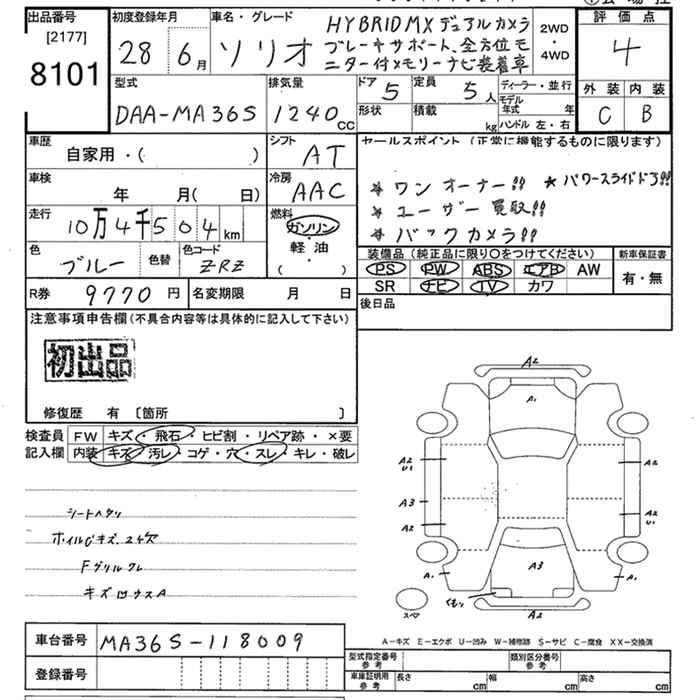 出品番号
[2177]
8101
初度登録年月
28年 6月
車名・グレード
ソリオ
HYBRIDMX デュアルカメラ
ブレーキサポート、全方位モ
ニター付メモリーナビ装着車
2WD
・
4WD
評価点
4
型式
DAA-MA36S
排気量
1240cc
ドア 5
定員 5人
ディーラー・並行
形状
積載 kg
モデル年式 年
ハンドル 左・右
外装 内装
C B
車歴
自家用・( )
シフト
AT
セールスポイント (正常に機能するものに限ります)
＊ ワンオーナー!! ★ パワースライドドア!!
＊ ユーザー買取!!
＊ バックカメラ!!
車検
年 月( 日)
冷房
AAC
走行
10万4千504km
燃料
ガソリン
・
軽・油
( ・ )
色
ブルー
色替
色コード
ZRZ
装備品 (純正品に限り○をつけてください)
新車保証書
PS PW ABS エアB AW
有・無
SR ナビ TV カワ
R券 9770円
名変期限 月 日
後日品
注意事項申告欄(不具合内容等は具体的に記入して下さい)
初出品
修復歴 有 〔箇所 〕
検査員
記入欄
FW キズ・飛石・ヒビ割・リペア跡・×要
内装 キズ・汚レ・コゲ・穴・スレ・キレ・破レ
シートヘタリ
ホイルGキズ、24穴
Fグリルワレ
キズ凹ウスA
A2
A1
A2
U1
A2
A3
A2
A2
U1
A1
A3
A1
くもり
A2
スペア
A-キズ E-エクボ U-凹み W-補修跡 S-サビ C-腐食 XX-交換済
車台番号 MA36S-118009
登録番号
型式指定番号
参考
類別区分番号
参考
車庫証明用
参考
長さ cm
幅 cm
高さ cm